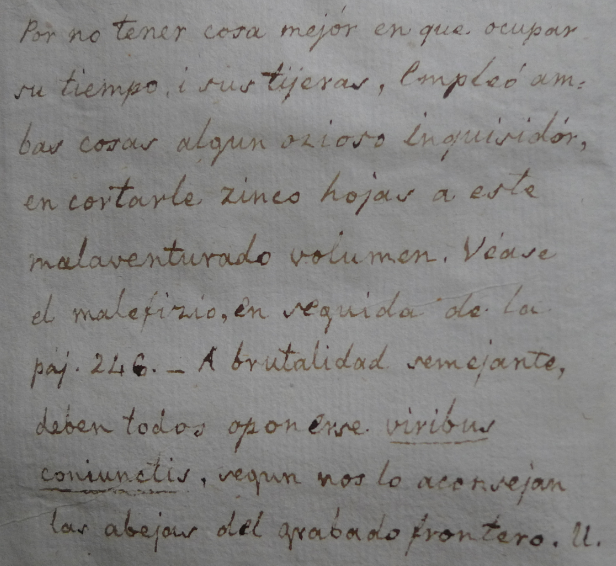 Por no tener cosa mejór en que ocupar
su tiempo, i sus tijeras, Empleó am=
bas cosas algun ozioso inquisidór,
en cortarle zinco hojas a este
malaventurado volumen. Véase
el malefizio, en seguida de la
páj. 246. – A brutalidad semejante,
deben todos oponerse viribus
coniunctis, segun nos lo aconsejan
las abejas del grabado frontero. U.